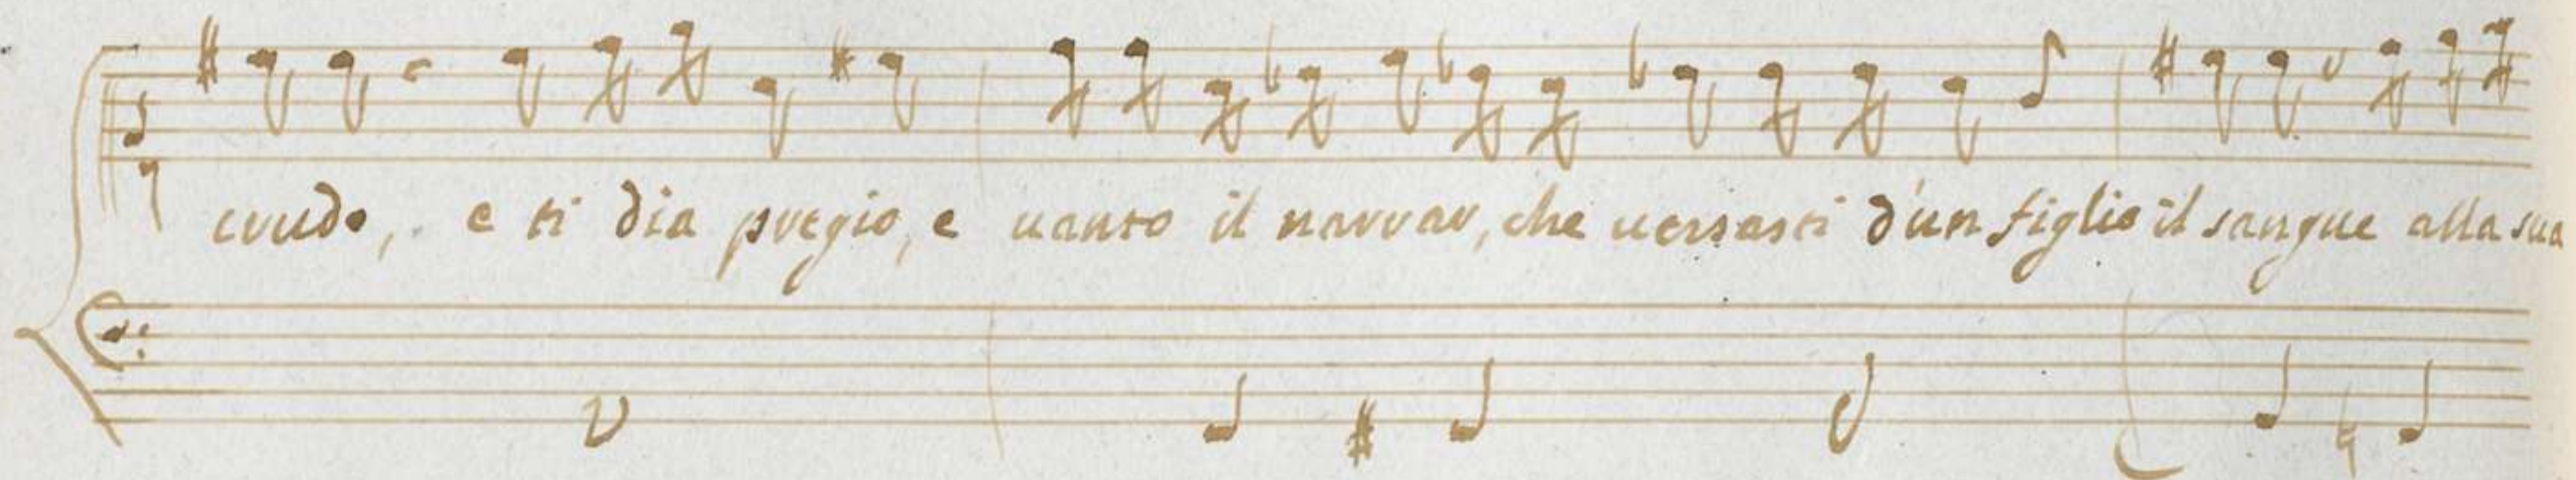 crudo, e ti dia pregio, e uanto il narrar, che uersasti d'un figlio il sangue alla sua